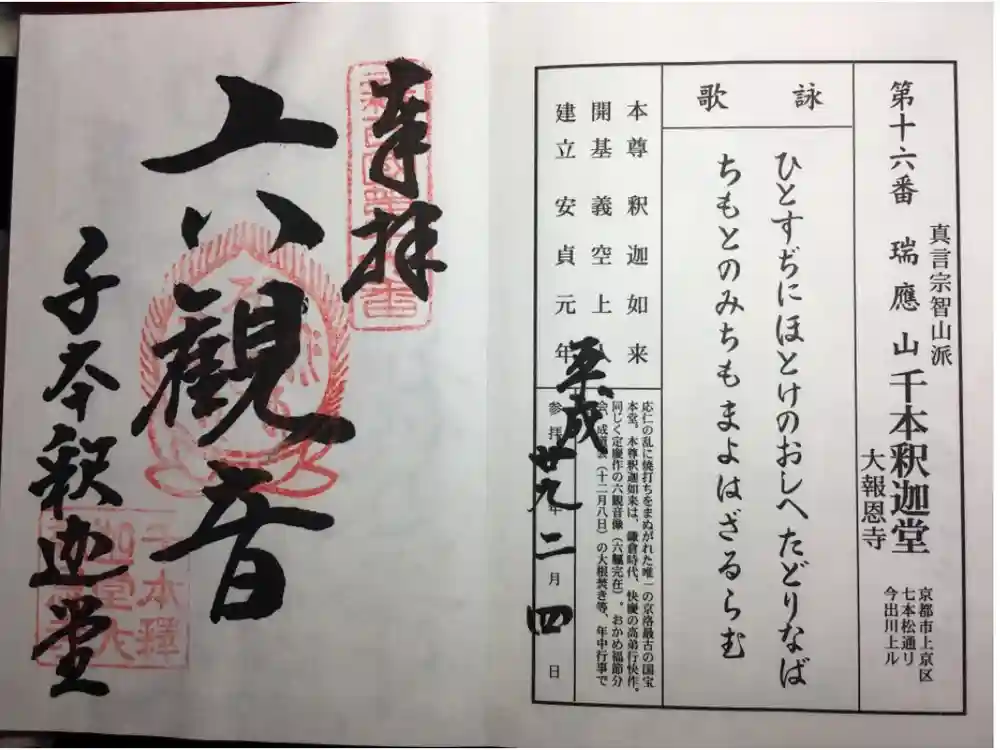 真言宗智山派
第十六番 瑞應山 千本釈迦堂
大報恩寺
京都市上京区
七本松通リ
今出川上ル
詠歌
ひとすぢにほとけのおしへたどりなば
ちもとのみちもまよはざるらむ
本尊 釈迦如来
開基 義空上人
建立 安貞元年
応仁の乱に焼打ちをまぬがれた唯一の京洛最古の国宝
本堂。本尊釈迦如来は、鎌倉時代、快慶の高弟行快作。
同じく定慶作の六観音像(六軀完在)。おかめ福節分
会、成道会(十二月八日)の大根焚き等、年中行事で
参拝 平成廿九年二月四日
奉拝
六観音
千本釈迦堂